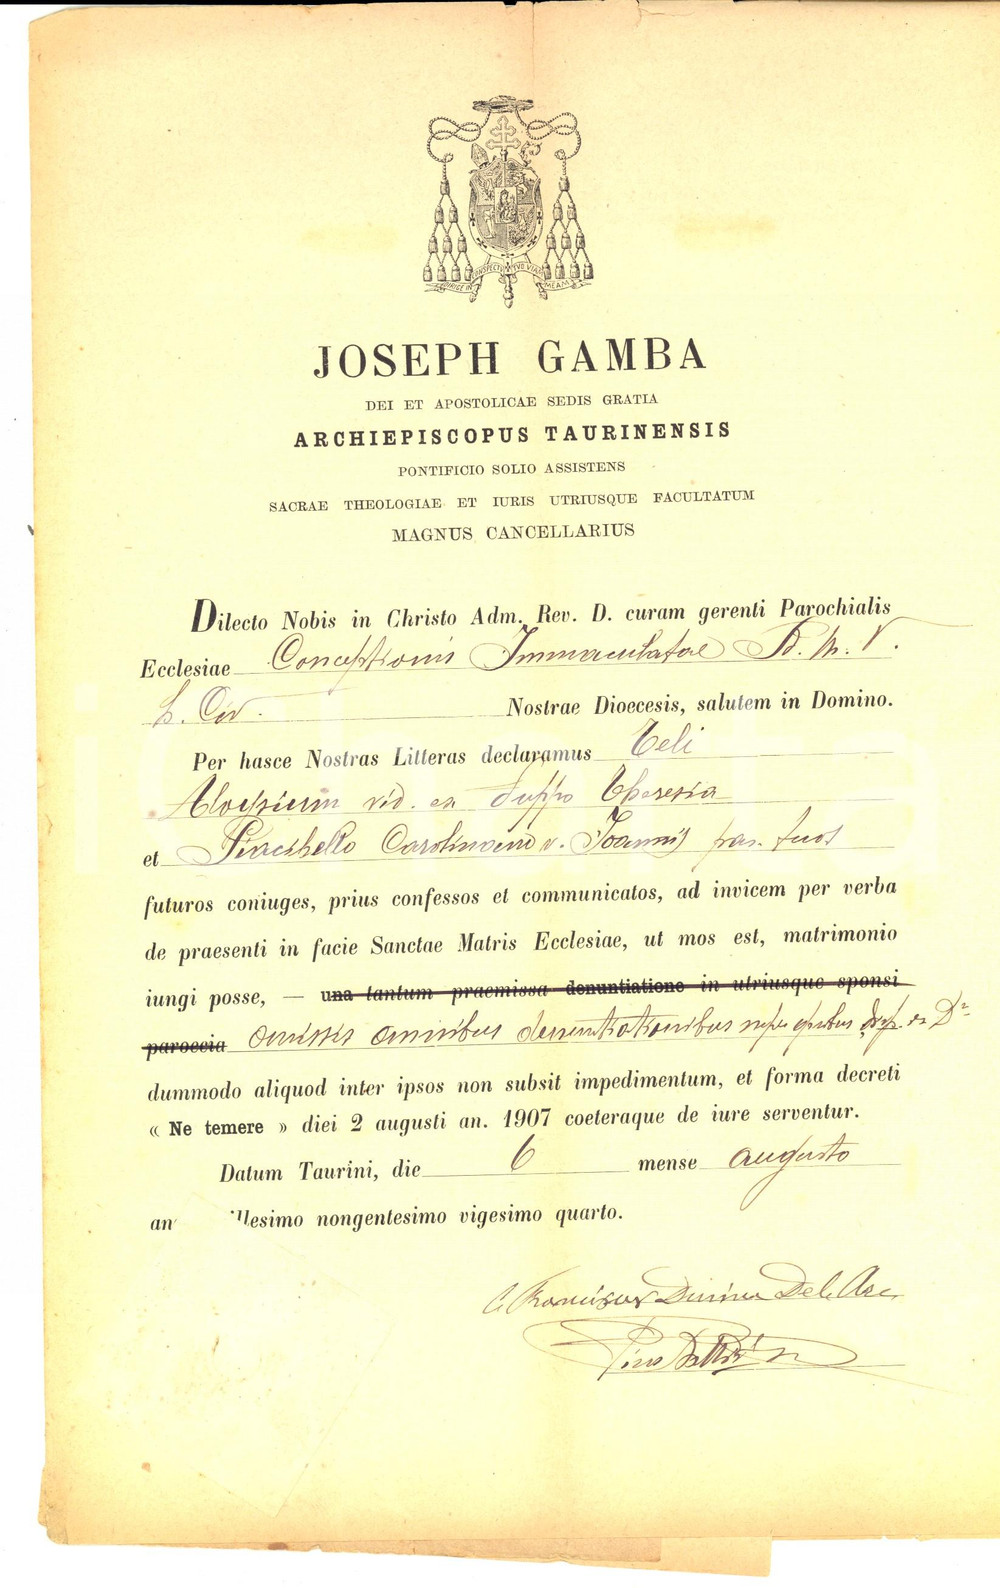 DIRIGE IN CONSPECTV TVO VIAM MEAM
JOSEPH GAMBA
DEI ET APOSTOLICAE SEDIS GRATIA
ARCHIEPISCOPUS TAURINENSIS
PONTIFICIO SOLIO ASSISTENS
SACRAE THEOLOGIAE ET IURIS UTRIUSQUE FACULTATUM
MAGNUS CANCELLARIUS
Dilecto Nobis in Christo Adm. Rev. D. curam gerenti Parochialis
Ecclesiae Conceptionis Immaculatae B. M. V.
h. Civ. Nostrae Dioecesis, salutem in Domino.
Per hasce Nostras Litteras declaramus Teli
Aloysium vid. ex Theresia
et Carolinam v. Joannis par. tuos
futuros coniuges, prius confessos et communicatos, ad invicem per verba
de praesenti in facie Sanctae Matris Ecclesiae, ut mos est, matrimonio
iungi posse, — una tantum praemissa denuntiatione in utriusque sponsi
paroecia omissis omnibus denuntiationibus super quibus disp. ex D
dummodo aliquod inter ipsos non subsit impedimentum, et forma decreti
« Ne temere » diei 2 augusti an. 1907 coeteraque de iure serventur.
Datum Taurini, die 6 mense augusto
an illesimo nongentesimo vigesimo quarto.
C. Franciscus Duvina Del. Arc.
Pius